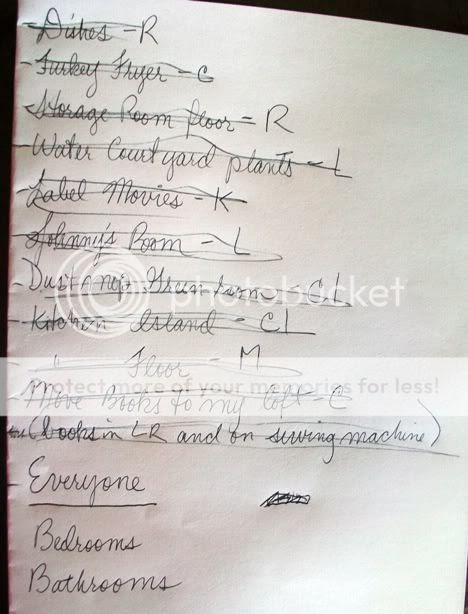 - Dishes - R
- Turkey Fryer - C
- Storage Room floor - R
- Water Courtyard plants - L
- Label Movies - K
- Johnny's Room - L
- Dust mop Green room - CL
- Kitchen Island - CL
" Floor - M
- Move Books to my loft - C
(books in LR and on sewing machine)
Everyone
Bedrooms
Bathrooms
photobucket
Protect more of your memories for less!